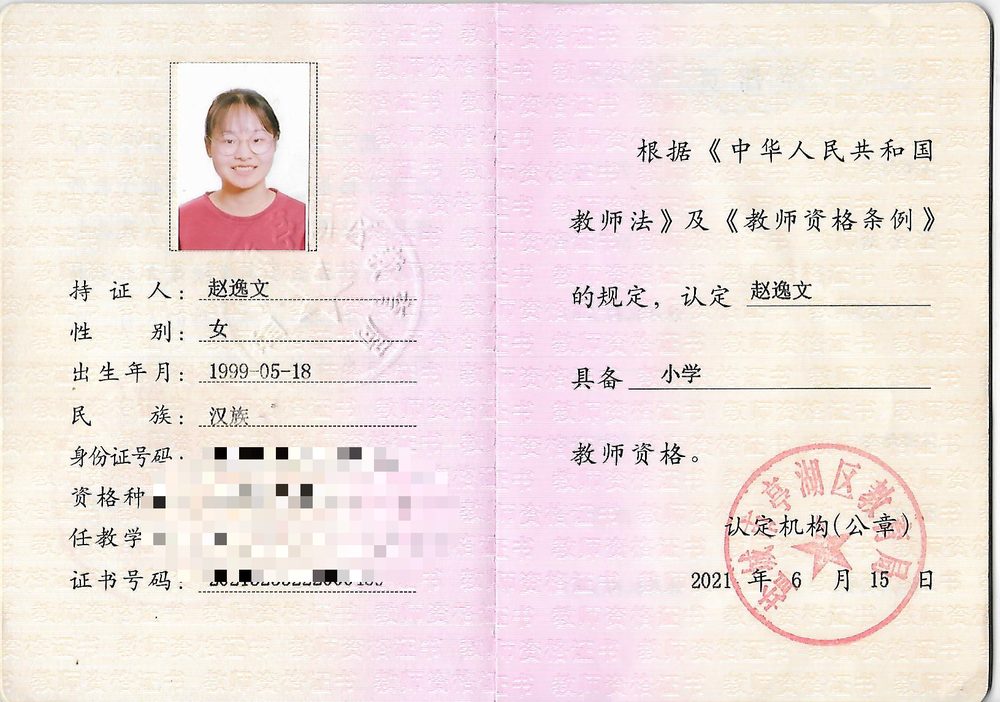 持证人：赵逸文
性别：女
出生年月：1999-05-18
民族：汉族
身份证号码
资格种
任教学
证书号码：
根据《中华人民共和国
教师法》及《教师资格条例》
的规定，认定 赵逸文
具备 小学
教师资格。
盐城市亭湖区教育局
认定机构(公章)
2021 年 6 月 15 日